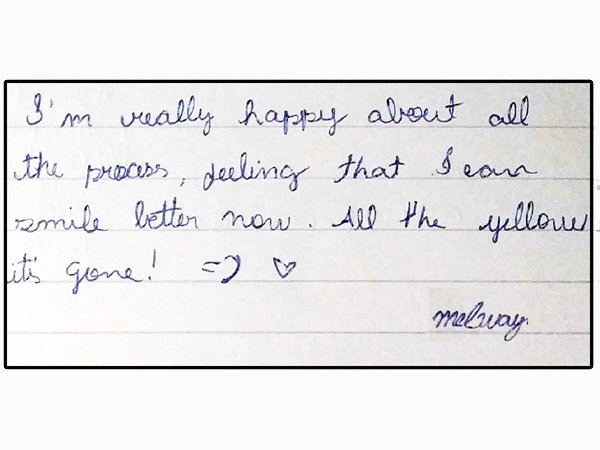 I'm really happy about all
the process, feeling that I can
smile better now. All the yellow
it's gone! =) ♡
melway.